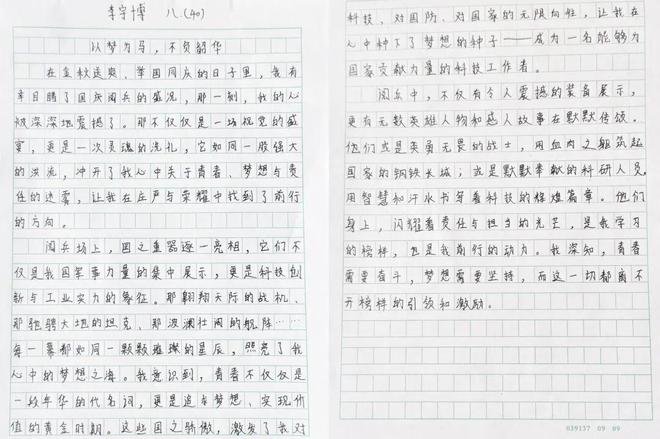 李宇博 八.(40)
以梦为马，不负韶华
在金秋送爽、举国同庆的日子里，我有
幸目睹了国庆阅兵的盛况，那一刻，我的心
被深深地震撼了。那不仅仅是一场视觉的盛
宴，更是一次灵魂的洗礼，它如同一股强大
的洪流，冲开了我心中关于青春、梦想与责
任的迷雾，让我在庄严与荣耀中找到了前行
的方向。
阅兵场上，国之重器逐一亮相，它们不
仅是我国军事力量的集中展示，更是科技创
新与工业实力的象征。那翱翔天际的战机、
那驰骋大地的坦克、那波澜壮阔的舰阵……
每一幕都如同一颗颗璀璨的星辰，照亮了我
心中的梦想之海。我意识到，青春不仅仅是
一段年华的代名词，更是追求梦想、实现价
值的黄金时期。这些国之骄傲，激发了我对
科技、对国防、对国家的无限向往，让我在
心中种下了梦想的种子——成为一名能够为
国家贡献力量的科技工作者。
阅兵中，不仅有令人震撼的装备展示，
更有无数英雄人物和感人故事在默默传颂。
他们或是英勇无畏的战士，用血肉之躯筑起
国家的钢铁长城；或是默默奉献的科研人员，
用智慧和汗水书写着科技的辉煌篇章。他们
身上，闪耀着责任与担当的光芒，是我学习
的榜样，也是我前行的动力。我深知，青春
需要奋斗，梦想需要坚持，而这一切都离不
开榜样的引领和激励。
039137 09 09